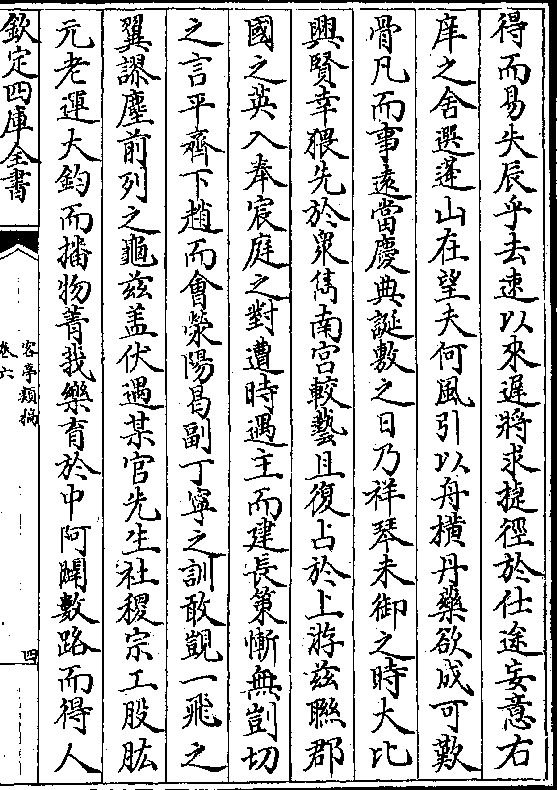 得而易失辰乎去速以來遲將求捷徑於仕途妄意右
庠之舍選蓬山在望夫何風引以舟橫丹藥欲成可歎
骨凡而事遠當慶典誕敷之日乃祥琴未御之時大比
興賢幸猥先於衆雋南宮較藝且復占於上游兹聯郡
國之英入奉宸庭之對遭時遇主而建長策慚無剴切
之言平齊下趙而會滎陽曷副丁寧之訓敢覬一飛之
翼謬塵前列之龜兹盖伏遇某官先生社稷宗工股肱
元老運大鈞而播物菁莪樂育於中阿闢數路而得人
欽定四庫全書
客亭類稿
卷六
四